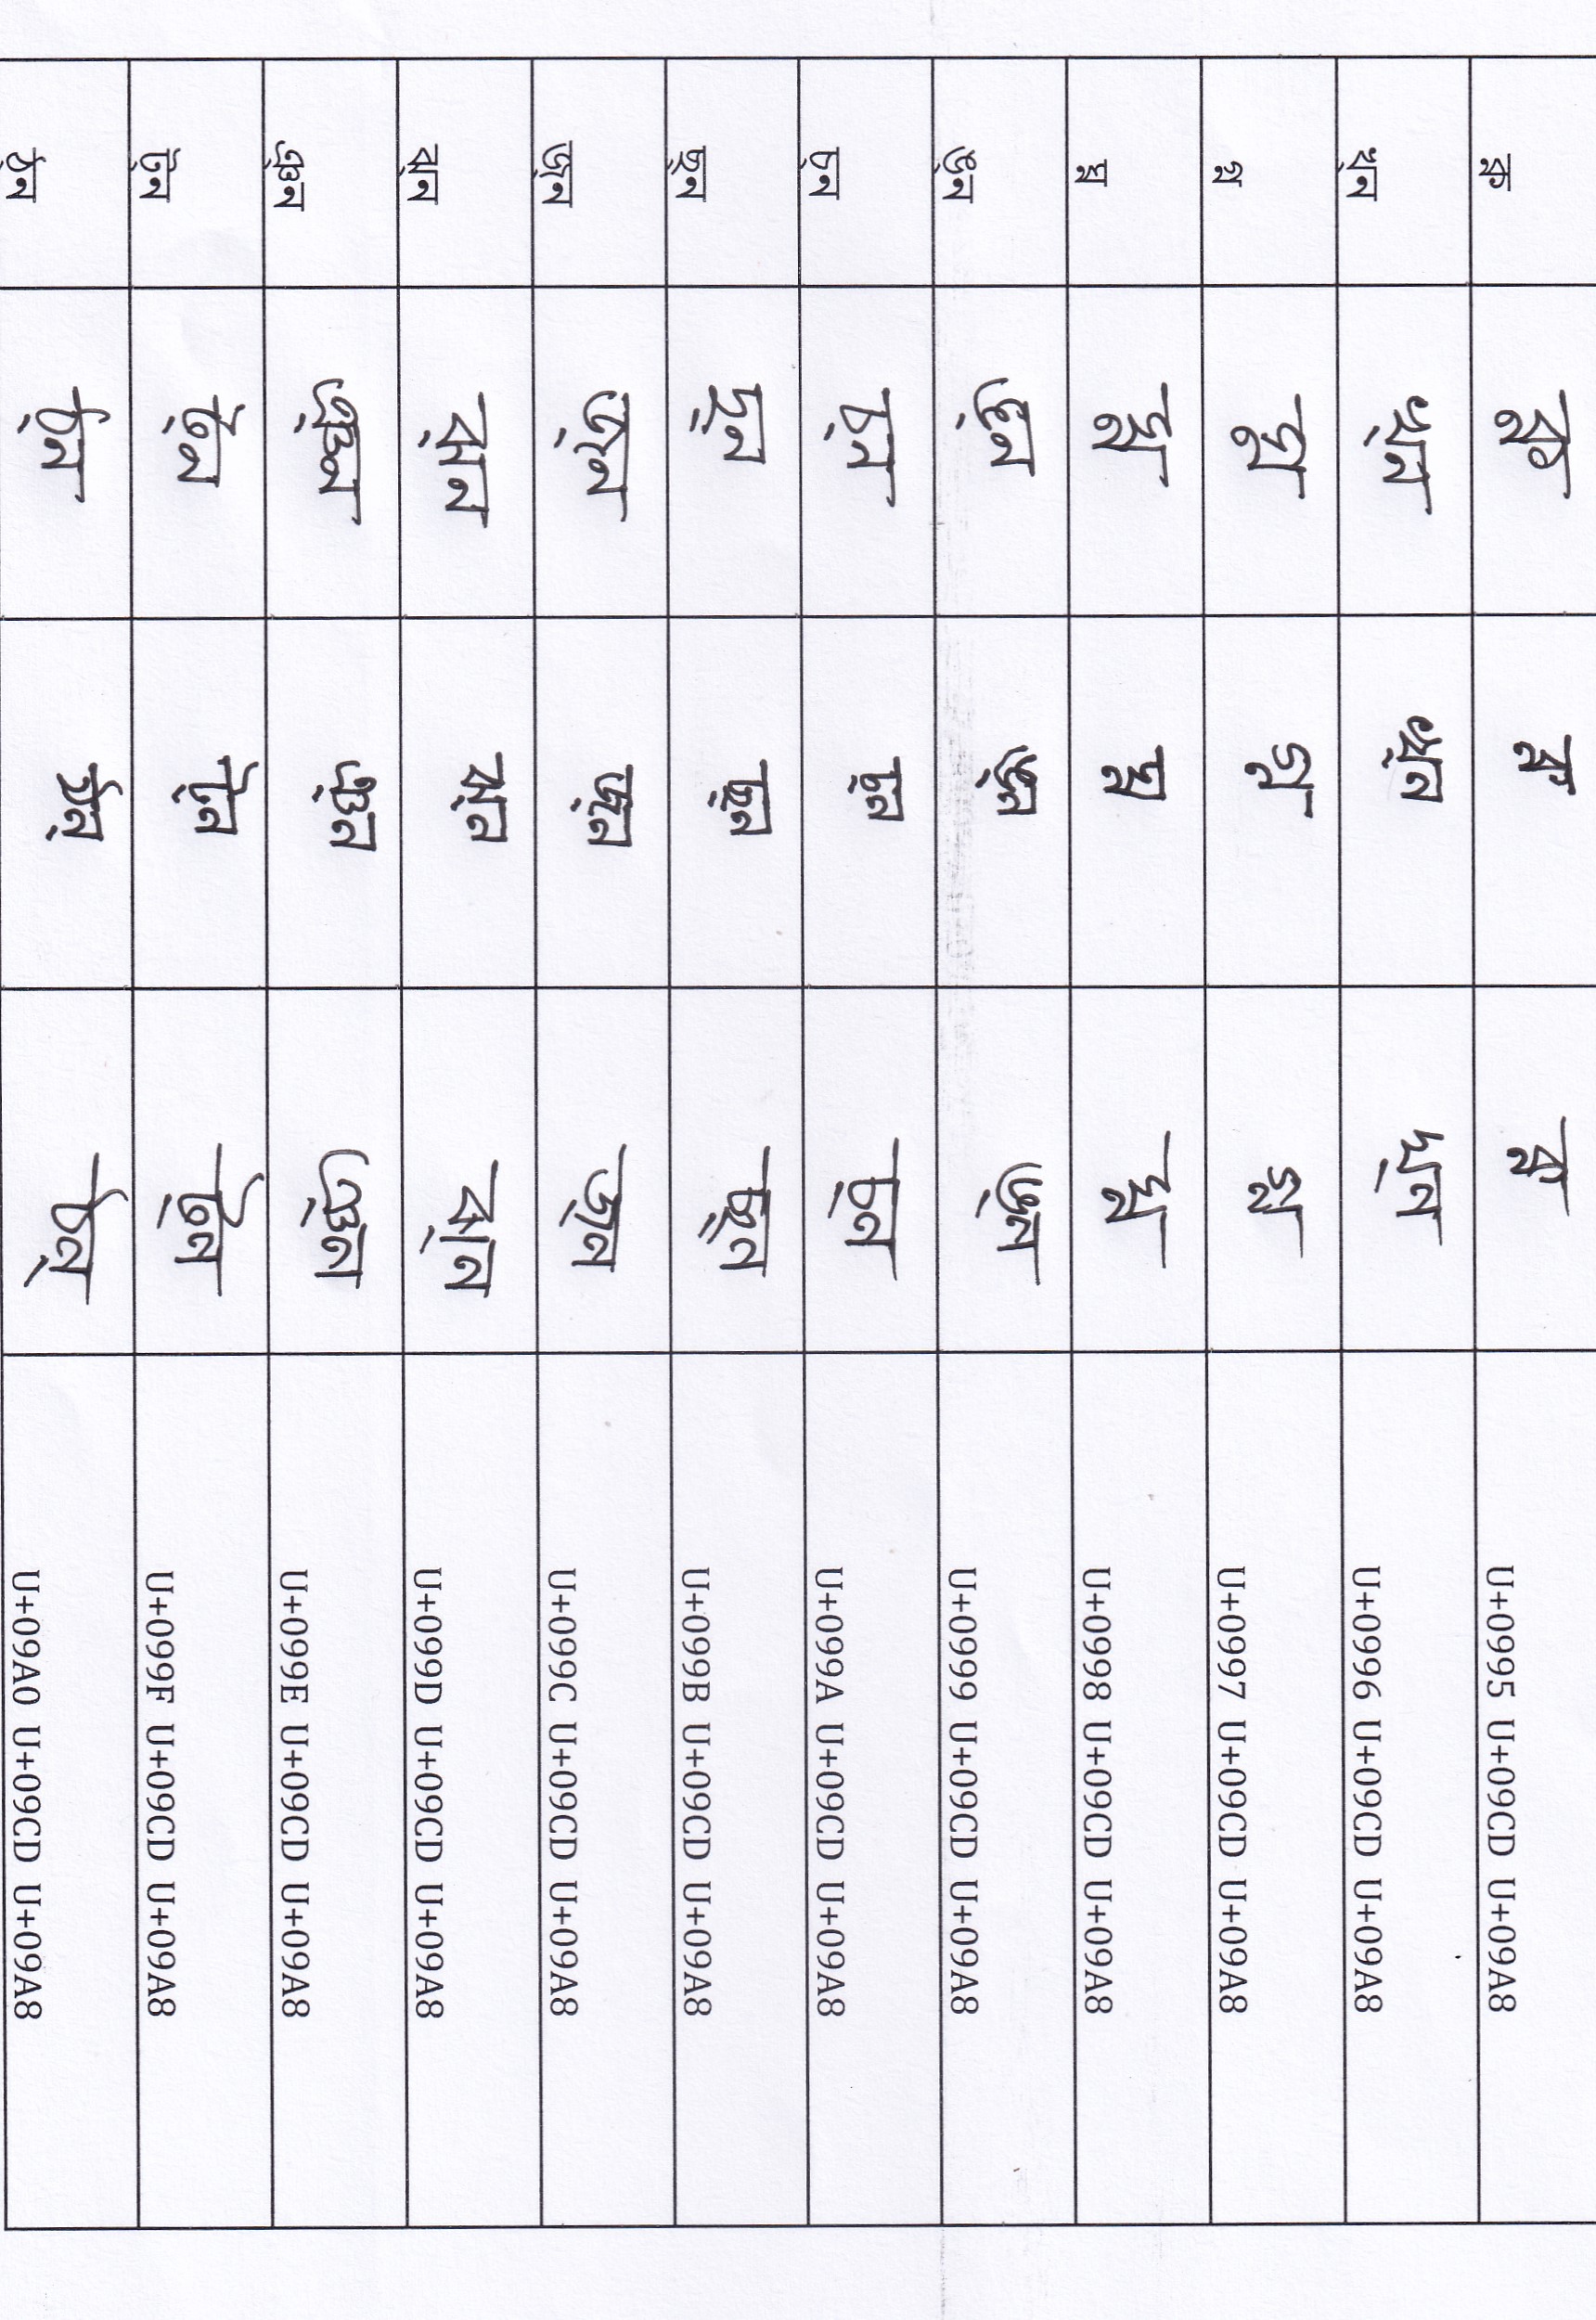 ক্ন ক্ন ক্ন ক্ন U+0995 U+09CD U+09A8
খ্ন খ্ন খ্ন খ্ন U+0996 U+09CD U+09A8
গ্ন গ্ন গ্ন গ্ন U+0997 U+09CD U+09A8
ঘ্ন ঘ্ন ঘ্ন ঘ্ন U+0998 U+09CD U+09A8
ঙ্ন ঙ্ন ঙ্ন ঙ্ন U+0999 U+09CD U+09A8
চ্ন চ্ন চ্ন চ্ন U+099A U+09CD U+09A8
ছ্ন ছ্ন ছ্ন ছ্ন U+099B U+09CD U+09A8
জ্ন জ্ন জ্ন জ্ন U+099C U+09CD U+09A8
ঝ্ন ঝ্ন ঝ্ন ঝ্ন U+099D U+09CD U+09A8
ঞ্ন ঞ্ন ঞ্ন ঞ্ন U+099E U+09CD U+09A8
ট্ন ট্ন ট্ন ট্ন U+099F U+09CD U+09A8
ঠ্ন ঠ্ন ঠন্ ঠন্ U+09A0 U+09CD U+09A8